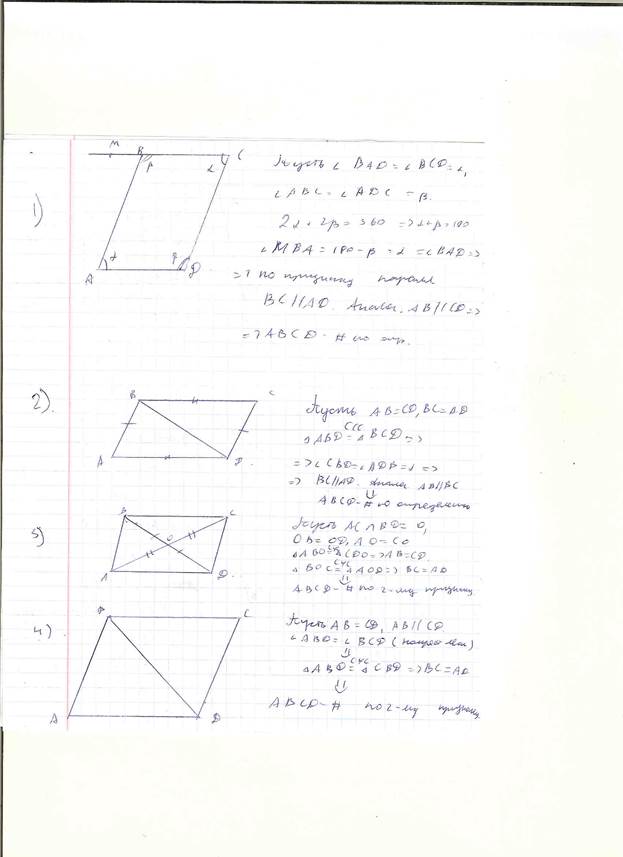 1)
M B C
β α
A α β D
Пусть ∠ BAD = ∠ BCD = α,
∠ABC = ∠ADC = β.
2α + 2β = 360 => α+β = 180
∠MBA = 180 - β = α = ∠BAD =>
=> по признаку паралл
BC//AD. Аналог. AB//CD =>
=> ABCD - # по опр.
2).
B C
A D
Пусть AB=CD, BC=AD
△ABD = △BCD =>
ССС
=> ∠CBD = ∠ADB = α =>
=> BC//AD. Аналог AB//BC
⇓
ABCD - # по определению
3)
B C
O
A D
Пусть AC ∩ BD = O,
OB = OD, AO = CO
△ABO = △CDO => AB = CD
СУС
△BOC = △AOD => BC = AD
СУС
⇓
ABCD - # по 2-му признаку
4)
C
A D
Пусть AB = CD, AB//CD
∠ABD = ∠BCD
⇓
△ABD = △CBD => BC = AD
СУС
⇓
ABCD - # по 2-му признаку